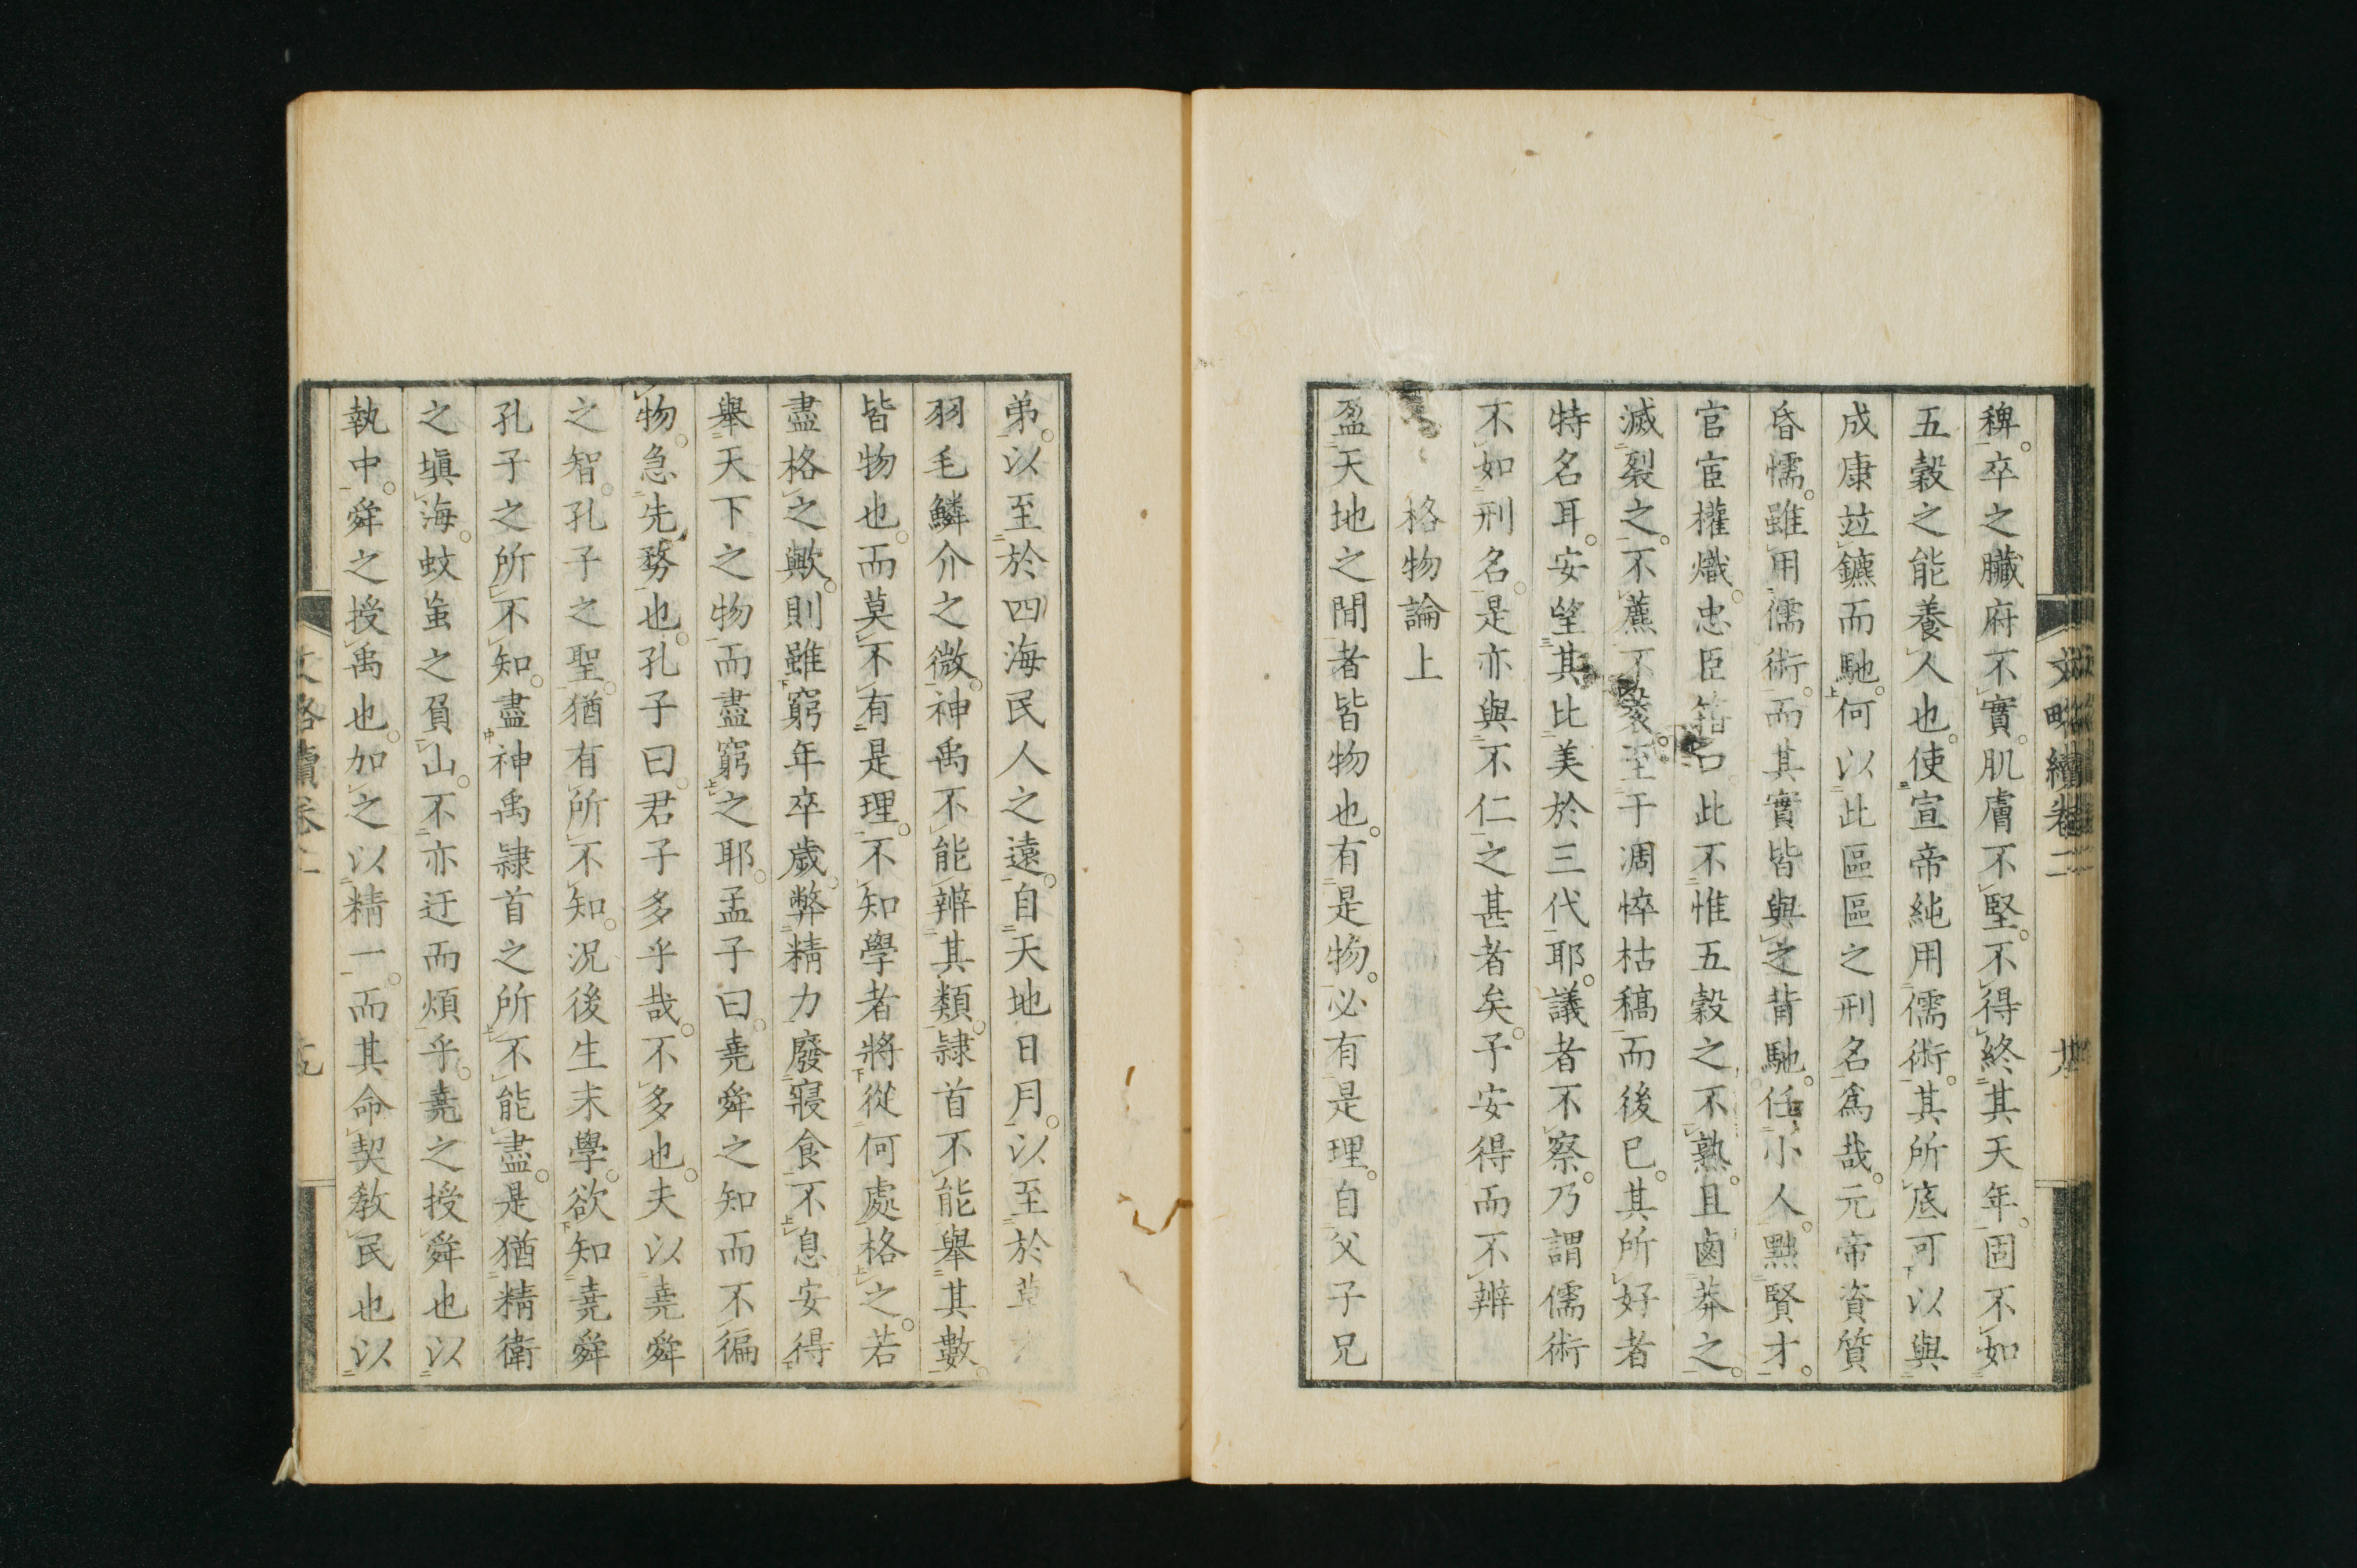 稗。卒之臟府不實。肌膚不堅。不得終其天年。固不如
五穀之能養人也。使宣帝純用儒術。其所底可以與
成康竝鑣而馳。何以此區區之刑名爲哉。元帝資質
昏懦。雖用儒術。而其實皆與之背馳。任小人。黜賢才。
官宦權熾。忠臣箝口。此不惟五穀之不熟。且鹵莽之
滅裂之。不藨不蓘。至于凋悴枯稿而後已。其所好者
特名耳。安望其比美於三代耶。議者不察。乃謂儒術
不如刑名。是亦與不仁之甚者矣。予安得而不辨
格物論上
盈天地之間者皆物也。有是物。必有是理。自父子兄
弟。以至於四海民人之遠。自天地日月。以至於草
羽毛鱗介之微。神禹不能辨其類。隷首不能舉其數。
皆物也。而莫不有是理。不知學者將從何處格之。若
盡格之歟。則雖窮年卒歲。弊精力廢寢食不息安得
舉天下之物而盡窮之耶。孟子曰。堯舜之知而不徧
物。急先務也。孔子曰。君子多乎哉。不多也。夫以堯舜
之智。孔子之聖。猶有所不知。況後生末學。欲知堯舜
孔子之所不知。盡神禹隷首之所不能盡。是猶精衛
之塡海。蚊蚉之負山。不亦迂而煩乎。堯之授舜也以
執中。舜之授禹也。加之以精一。而其命契敎民也以
文略續卷二